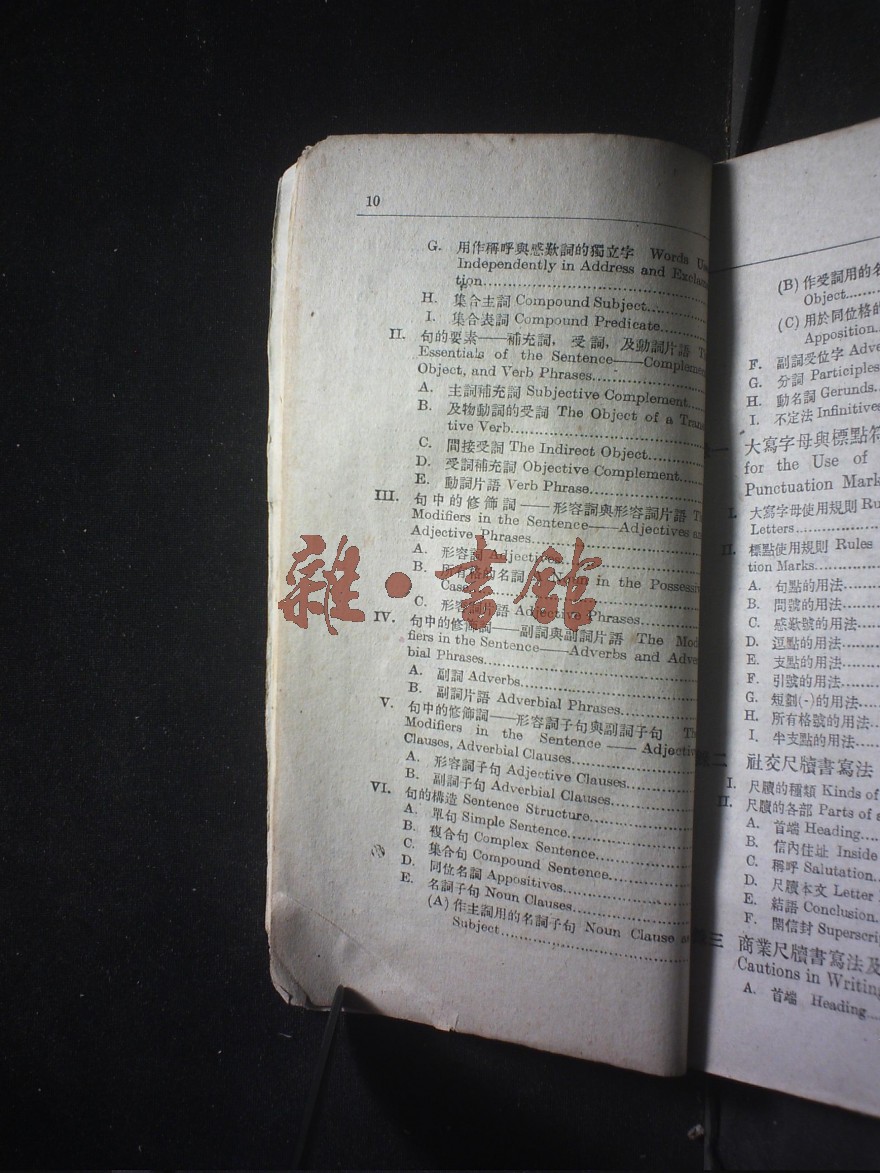 10
G. 用作稱呼與感歎詞的獨立字 Words
Independently in Address and
tion
H. 集合主詞 Compound Subject
I. 集合表詞 Compound Predicate
II. 句的要素——補充詞，受詞，及動詞片語
Essentials of the Sentence——
Object, and Verb Phrases
A. 主詞補充詞 Subjective Complement
B. 及物動詞的受詞 The Object of a
tive Verb
C. 間接受詞 The Indirect Object
D. 受詞補充詞 Objective Complement
E. 動詞片語 Verb Phrase
III. 句中的修飾詞——形容詞與形容詞片語
Modifiers in the Sentence——Adjectives
Adjective Phrases
A. 形容詞 Adjectives
B. 所有格的名詞 A Noun in the
Case
C. 形容詞片語 Adjective Phrases
雜·書館
IV. 句中的修飾詞——副詞與副詞片語 The
fiers in the Sentence——Adverbs and
bial Phrases
A. 副詞 Adverbs
B. 副詞片語 Adverbial Phrases
V. 句中的修飾詞——形容詞子句與副詞子句
Modifiers in the Sentence——
Clauses, Adverbial Clauses
A. 形容詞子句 Adjective Clauses
B. 副詞子句 Adverbial Clauses
VI. 句的構造 Sentence Structure
A. 單句 Simple Sentence
B. 複合句 Complex Sentence
C. 集合句 Compound Sentence
D. 同位名詞 Appositives
E. 名詞子句 Noun Clauses
(A) 作主詞用的名詞子句 Noun Clause as
Subject
(B) 作受詞用的名
Object
(C) 用於同位格的
Apposition
F. 副詞受位字
G. 分詞 Participles
H. 動名詞 Gerunds
I. 不定法 Infinitives
大寫字母與標點符
for the Use of
Punctuation
I. 大寫字母使用規則
Letters
II. 標點使用規則 Rules
tion Marks
A. 句點的用法
B. 問號的用法
C. 感歎號的用法
D. 逗點的用法
E. 支點的用法
F. 引號的用法
G. 短劃(-)的用法
H. 所有格號的用法
I. 半支點的用法
二 社交尺牘書寫法
I. 尺牘的種類 Kinds of
II. 尺牘的各部 Parts of
A. 首端 Heading
B. 信內住址 Inside
C. 稱呼 Salutation
D. 尺牘本文 Letter
E. 結語 Conclusion
F. 開信封
三 商業尺牘書寫法及
Cautions in Writing
A. 首端 Heading